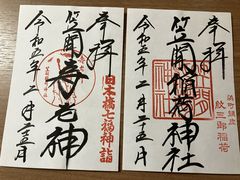 奉拝
浜町鎮座
紋三郎稲荷
笠間稲荷神社
令和五年二月二十五日
奉拝
日本橋七福神詣
笠間寿老神
令和五年二月二十五日